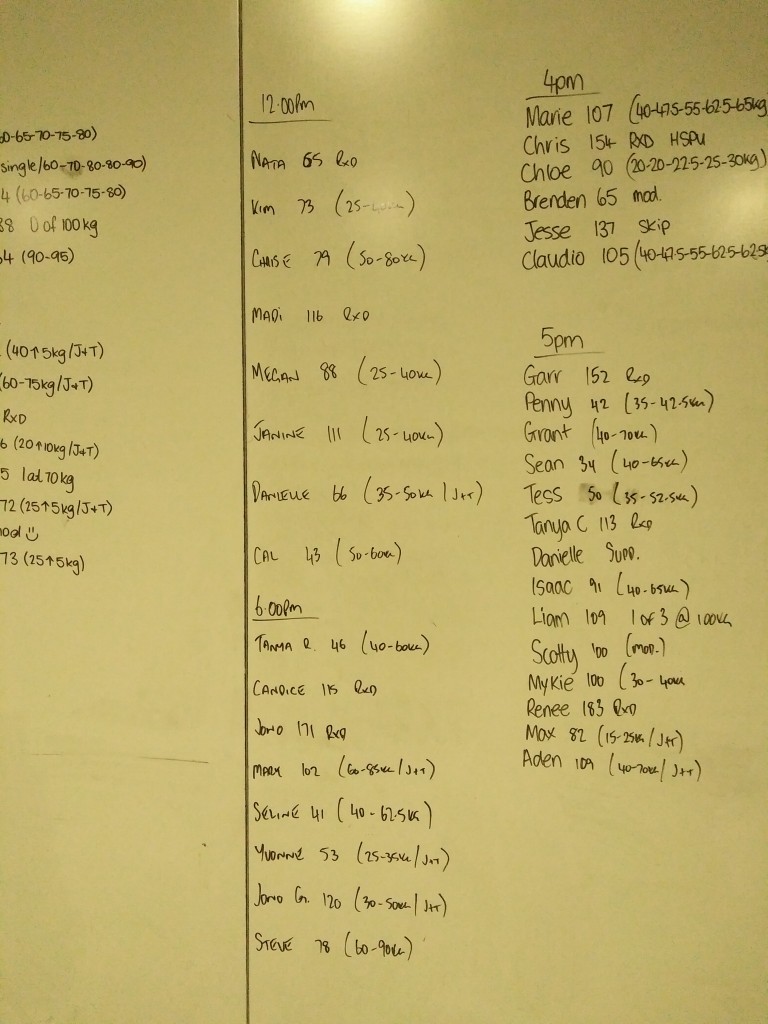 60-65-70-75-80)
single/60-70-80-80-90)
4 (60-65-70-75-80)
38 0 of 100kg
64 (90-95)
(40↑5kg/J+T)
(60-75kg/J+T)
RXD
6 (20↑10kg/J+T)
5 1@70kg
72 (25↑5kg/J+T)
mod ☺
73 (25↑5kg)
12:00pm
NATA 65 RXD
KIM 73 (25-
CHRISE 79 (50-80KG)
MADI 116 RXD
MEGAN 88 (25-40KG)
JANINE 111 (25-40KG)
DANIELLE 66 (35-50KG / J+T)
CAL 43 (50-60KG)
6:00pm
TANYA R. 46 (40-60KG)
CANDICE 115 RXD
JONO 171 RXD
MARK 102 (60-85KG/J+T)
SELINE 41 (40-62.5KG)
YVONNE 53 (25-35KG/J+T)
JONO G. 120 (30-50KG / J+T)
STEVE 78 (60-90KG)
4pm
Marie 107 (40-47.5-55-62.5-65kg)
Chris 154 RXD HSPU
Chloe 90 (20-20-22.5-25-30kg)
Brenden 65 mod.
Jesse 137 skip
Claudio 105 (40-47.5-55-62.5-62.5k
5pm
Garr 152 RXD
Penny 42 (35-42.5KG)
Grant (40-70KG)
Sean 34 (40-65KG)
Tess 50 (35-52.5KG)
Tanya C 113 RXD
Danielle Supp.
Isaac 91 (40-65KG)
Liam 109 1 of 3 @ 100KG
Scotty 100 (MOD.)
Mykie 100 (30-40KG
Renee 183 RXD
Max 82 (15-25KG/J+T)
Aden 109 (40-70KG/J+T)